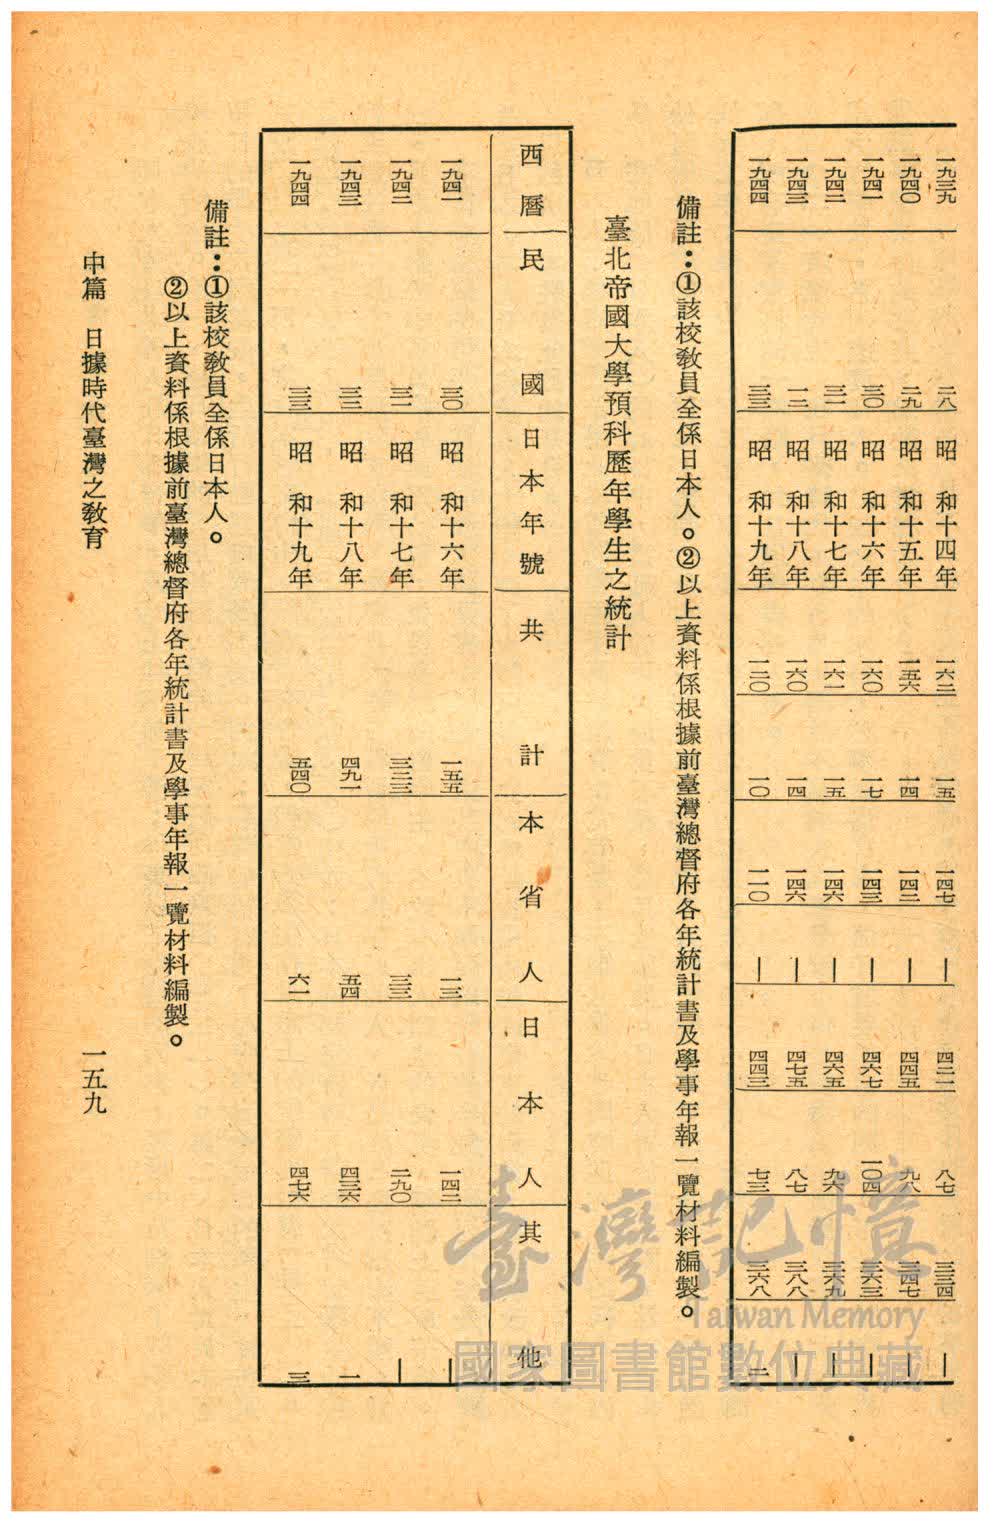 一九三九 二八 昭和十四年 一六二 一五 一四七 ｜ 四二一 八七 三三四 ｜
一九四〇 二九 昭和十五年 一五六 一四 一四二 ｜ 四四五 九八 三四七 ｜
一九四一 三〇 昭和十六年 一六〇 一七 一四三 ｜ 四六七 一〇四 三六三 ｜
一九四二 三一 昭和十七年 一六一 一五 一四六 ｜ 四六五 九六 三六九 ｜
一九四三 三二 昭和十八年 一六〇 一四 一四六 ｜ 四七五 八七 三八八 ｜
一九四四 三三 昭和十九年 一二〇 一〇 一一〇 ｜ 四四三 七三 三六八 二
備註：①該校敎員全係日本人。②以上資料係根據前臺灣總督府各年統計書及學事年報一覽材料編製。
臺北帝國大學預科歷年學生之統計
西曆 民國 日本年號 共計 本省人 日本人 其他
一九四一 三〇 昭和十六年 一五五 一三 一四二 ｜
一九四二 三一 昭和十七年 三二三 三三 二九〇 ｜
一九四三 三二 昭和十八年 四九一 五四 四三六 一
一九四四 三三 昭和十九年 五四〇 六一 四七六 三
備註：①該校敎員全係日本人。
②以上資料係根據前臺灣總督府各年統計書及學事年報一覽材料編製。
中篇 日據時代臺灣之敎育 一五九
臺灣記憶
Taiwan Memory
國家圖書館數位典藏